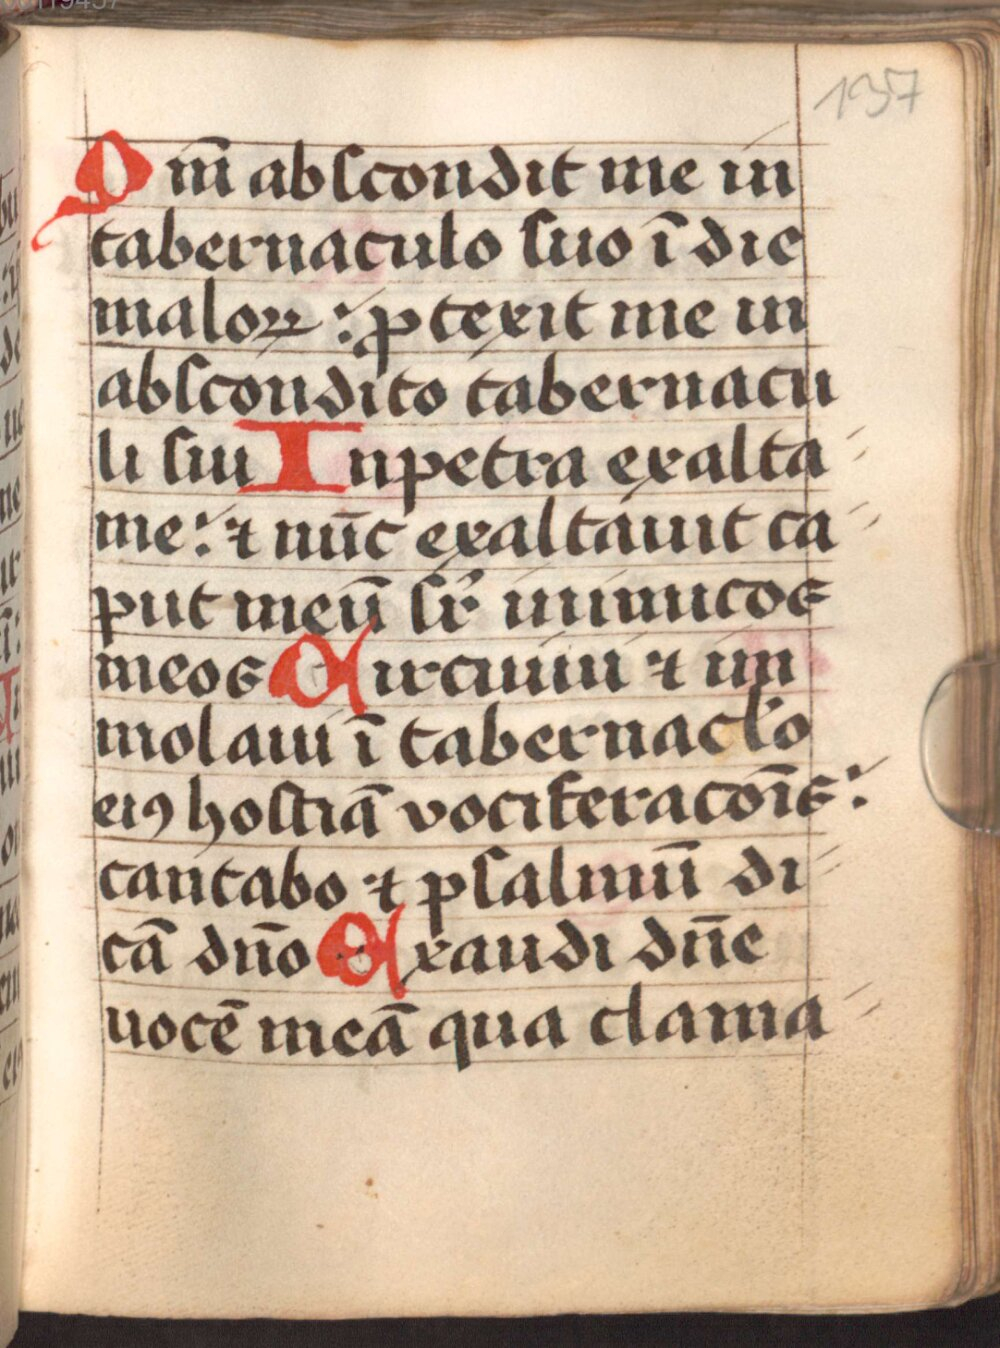 137
Qm̄ abscondit me in
tabernaculo suo ī die
maloꝝ : ꝓtexit me in
abscondito tabernacu
li sui In petra exalta
me : ⁊ nūc exaltauit ca
put meū sr̄ inimicos
meos Circuiui ⁊ im
molaui ī tabernaclo
eiꝰ hostiā vociferacōīs :
cantabo ⁊ psalmū di
cā dn̄o Exaudi dn̄e
uocē meā qua clama